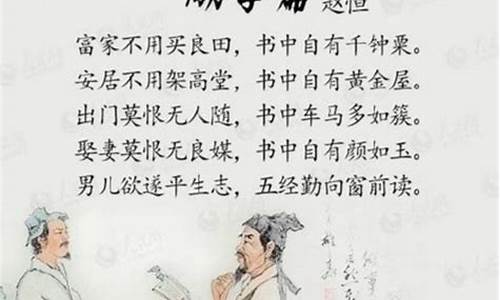 励学篇 赵恒
富家不用买良田，书中自有千钟粟。
安居不用架高堂，书中自有黄金屋。
出门莫恨无人随，书中车马多如簇。
娶妻莫恨无良媒，书中自有颜如玉。
男儿欲遂平生志，五经勤向窗前读。